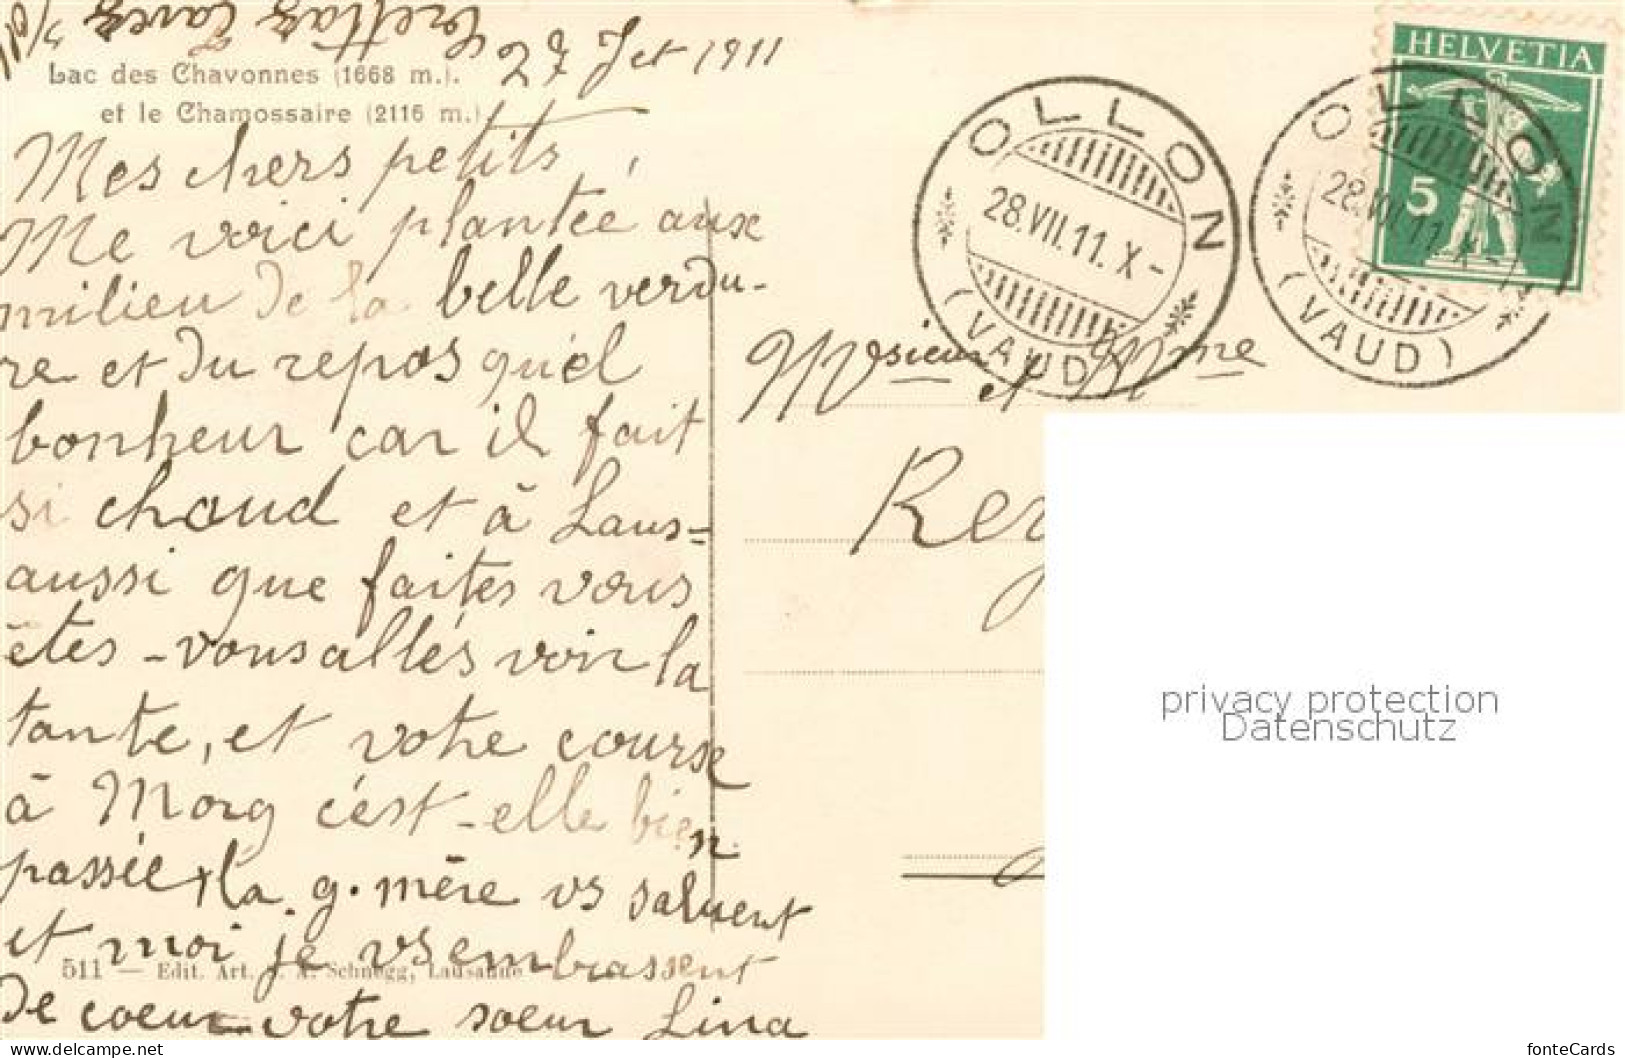 27 Jet 1911
Lac des Chavonnes (1668 m.).
et le Chamossaire (2116 m.)
Mes chers petits,
Me voici plantée aux
milieu de la belle verdu-
re et du repos qu'el
bonheur car il fait
si chaud et à Laus=
aussi que faites vous
êtes-vous allés voir la
tante, et votre course
à Morg c'est-elle bien
passée, la g. mère vs saluent
et moi je vs embrassent
de coeur votre soeur Lina
511 — Edit. Art. A. Schnegg, Lausanne
OLLON
28.VII.11.X-
(VAUD)
OLLON
28.VII.11.X-
(VAUD)
HELVETIA
5
Monsieur et Mme
Rey
privacy protection
Datenschutz
www.delcampe.net
fonteCards